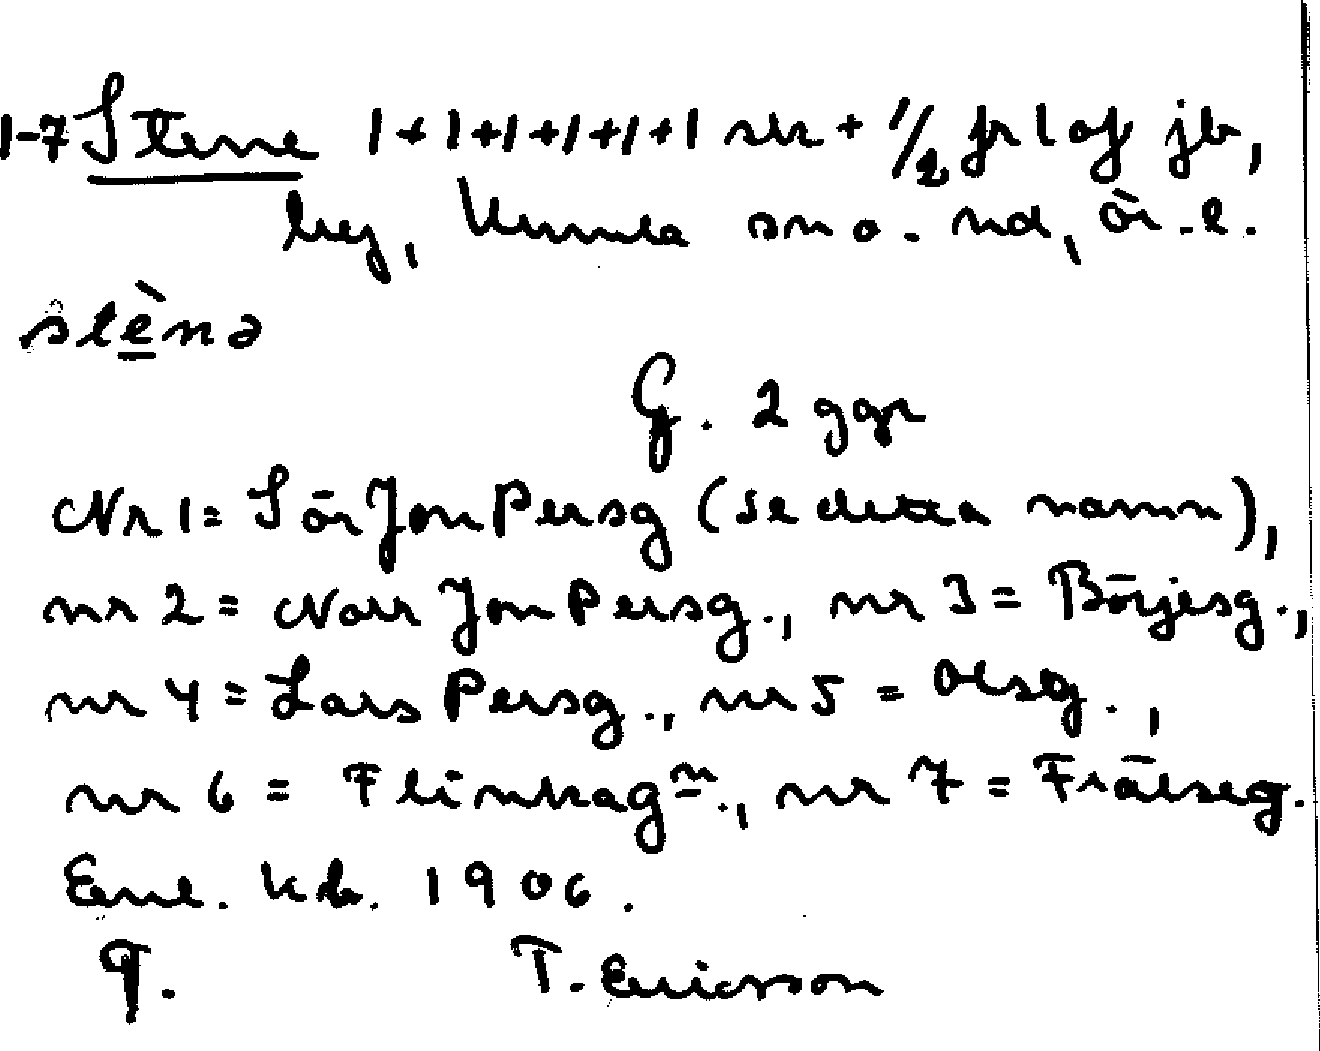 1-7 Stene 1+1+1+1+1+1 sk + 1/2 fr l af jb,
by, Kumla sn o. hd, Ör. l.
stènə
G. 2 ggr
Nr 1 = Sör Jon Persg (se detta namn),
nr 2 = Norr Jon Persg., nr 3 = Börjesg.,
nr 4 = Lars Persg., nr 5 = Olsg.,
nr 6 = Flinkag~n., nr 7 = Frälseg.
Enl. kb. 1906.
T. Ericsson